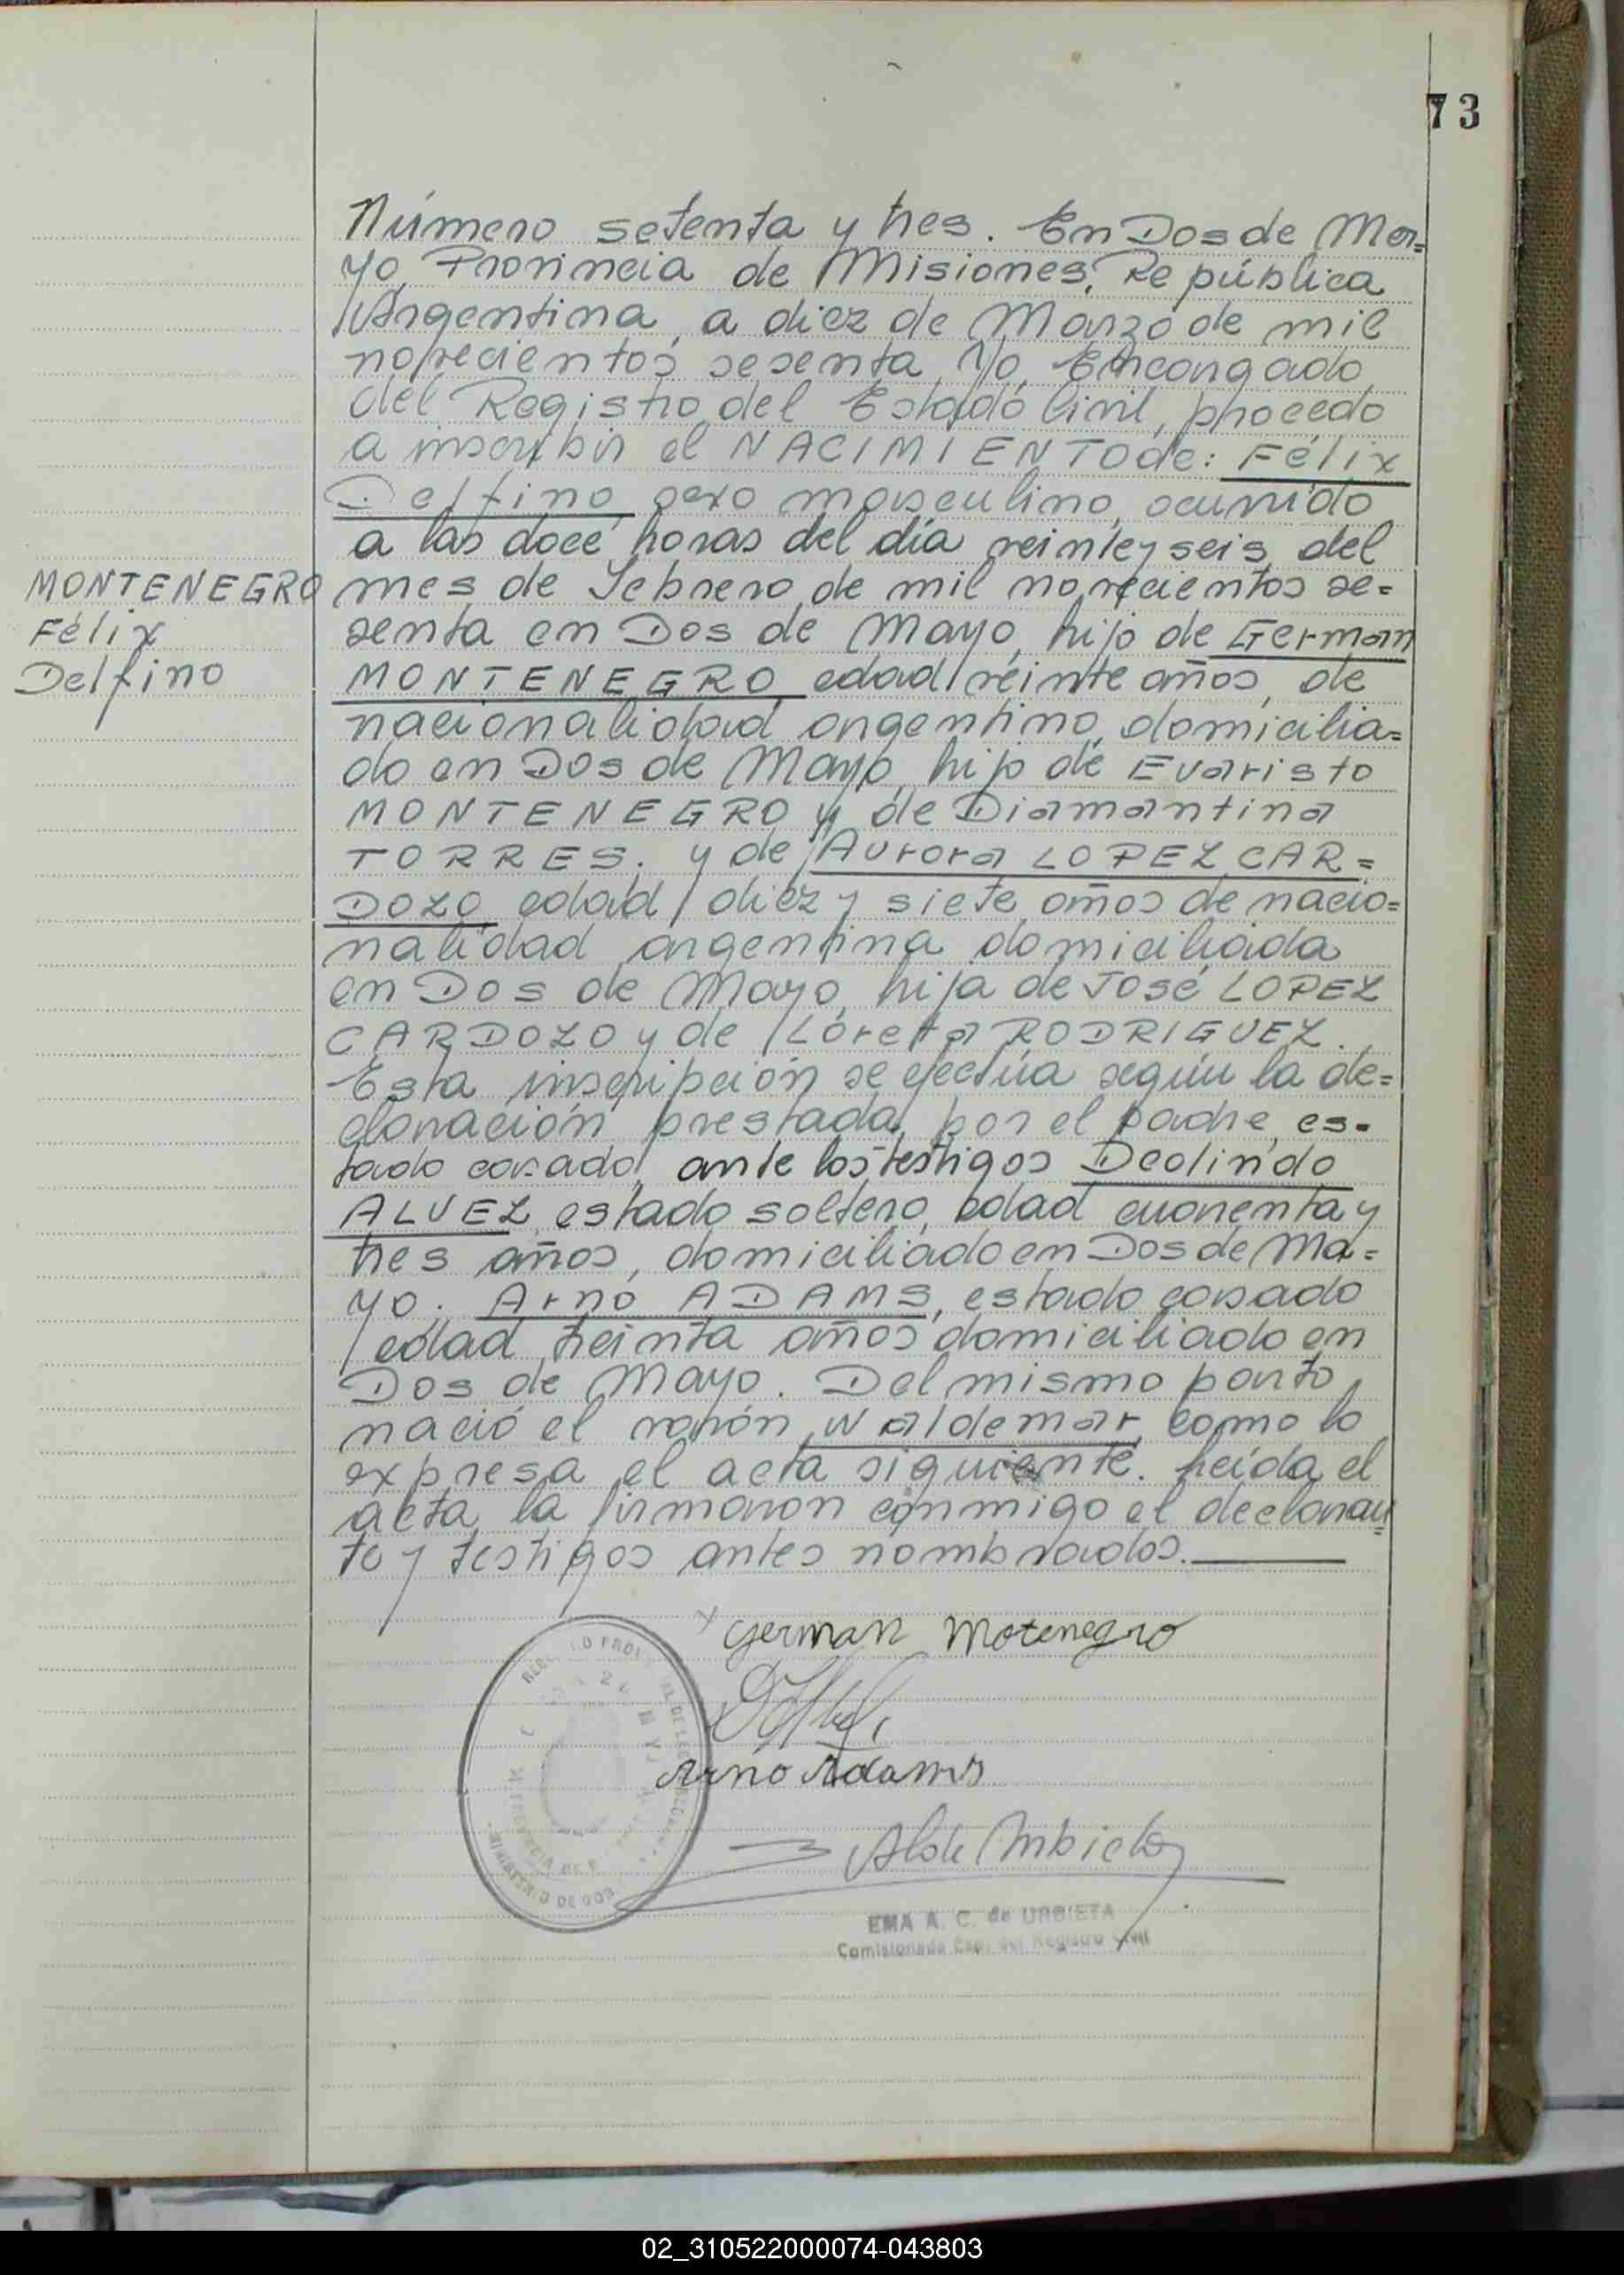 73
Número setenta y tres. En Dos de Ma=
yo, Provincia de Misiones, República
Argentina, a diez de Marzo de mil
novecientos sesenta, Yo, Encargado
del Registro del Estado Civil, procedo
a inscribir el NACIMIENTO de: Félix
Delfino, sexo masculino, ocurrido
a las doce horas del día veinteyseis del
mes de Febrero de mil novecientos se=
senta en Dos de Mayo, hijo de German
MONTENEGRO edad veinte años, de
nacionalidad argentino, domicilia=
do en Dos de Mayo, hijo de Evaristo
MONTENEGRO y de Diamantina
TORRES. y de Aurora LOPEZ CAR=
DOZO edad diez y siete años de nacio=
nalidad argentina domiciliada
en Dos de Mayo, hija de José LOPEZ
CARDOZO y de Loreta RODRIGUEZ.
Esta inscripción se efectúa según la de=
claración prestada por el padre, es-
tado casado, ante los testigos Deolindo
ALVEZ, estado soltero, edad cuarenta y
tres años, domiciliado en Dos de Ma=
yo. Arno ADAMS, estado casado
edad treinta años domiciliado en
Dos de Mayo. Del mismo parto
nació el varón Waldemar, como lo
expresa el acta siguiente. Leída el
acta, la firmaron conmigo el declaran=
te y testigos antes nombrados.
MONTENEGRO
Félix
Delfino
German Motenegro
Arno Adams
EMA A. C. de URBIETA
Comisionada Esp. del Registro Civil
MINISTERIO DE GOB
02_310522000074-043803